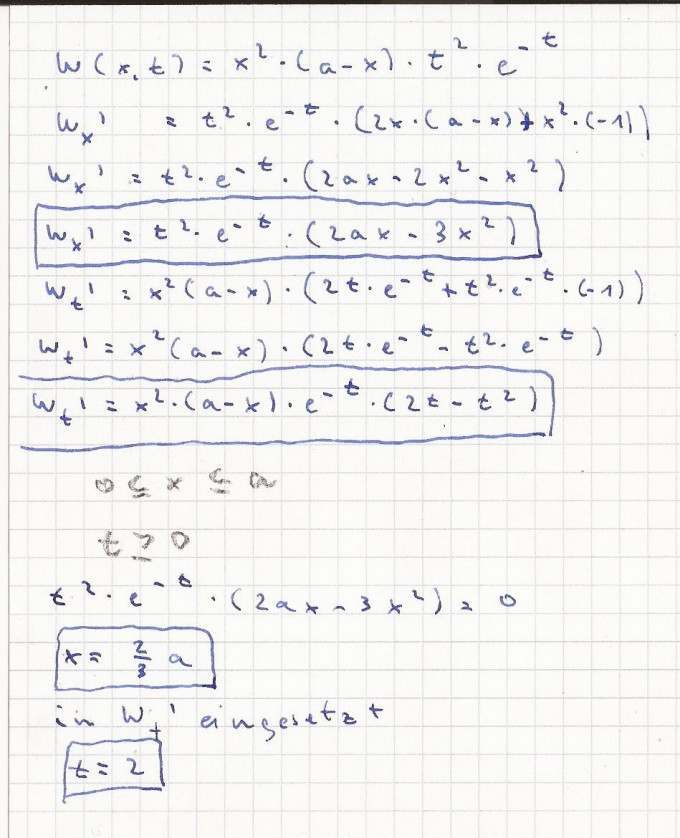 W(x,t) = x²·(a-x)·t²·e^-t
Wx' = t²·e^-t·(2x·(a-x)+x²·(-1))
Wx' = t²·e^-t·(2ax-2x²-x²)
Wx' = t²·e^-t·(2ax-3x²)
Wt' = x²(a-x)·(2t·e^-t+t²·e^-t·(-1))
Wt' = x²(a-x)·(2t·e^-t-t²·e^-t)
Wt' = x²·(a-x)·e^-t·(2t-t²)
0 ≤ x ≤ a
t ≥ 0
t²·e^-t·(2ax-3x²) = 0
x = 2/3 a
in Wt' eingesetzt
t = 2